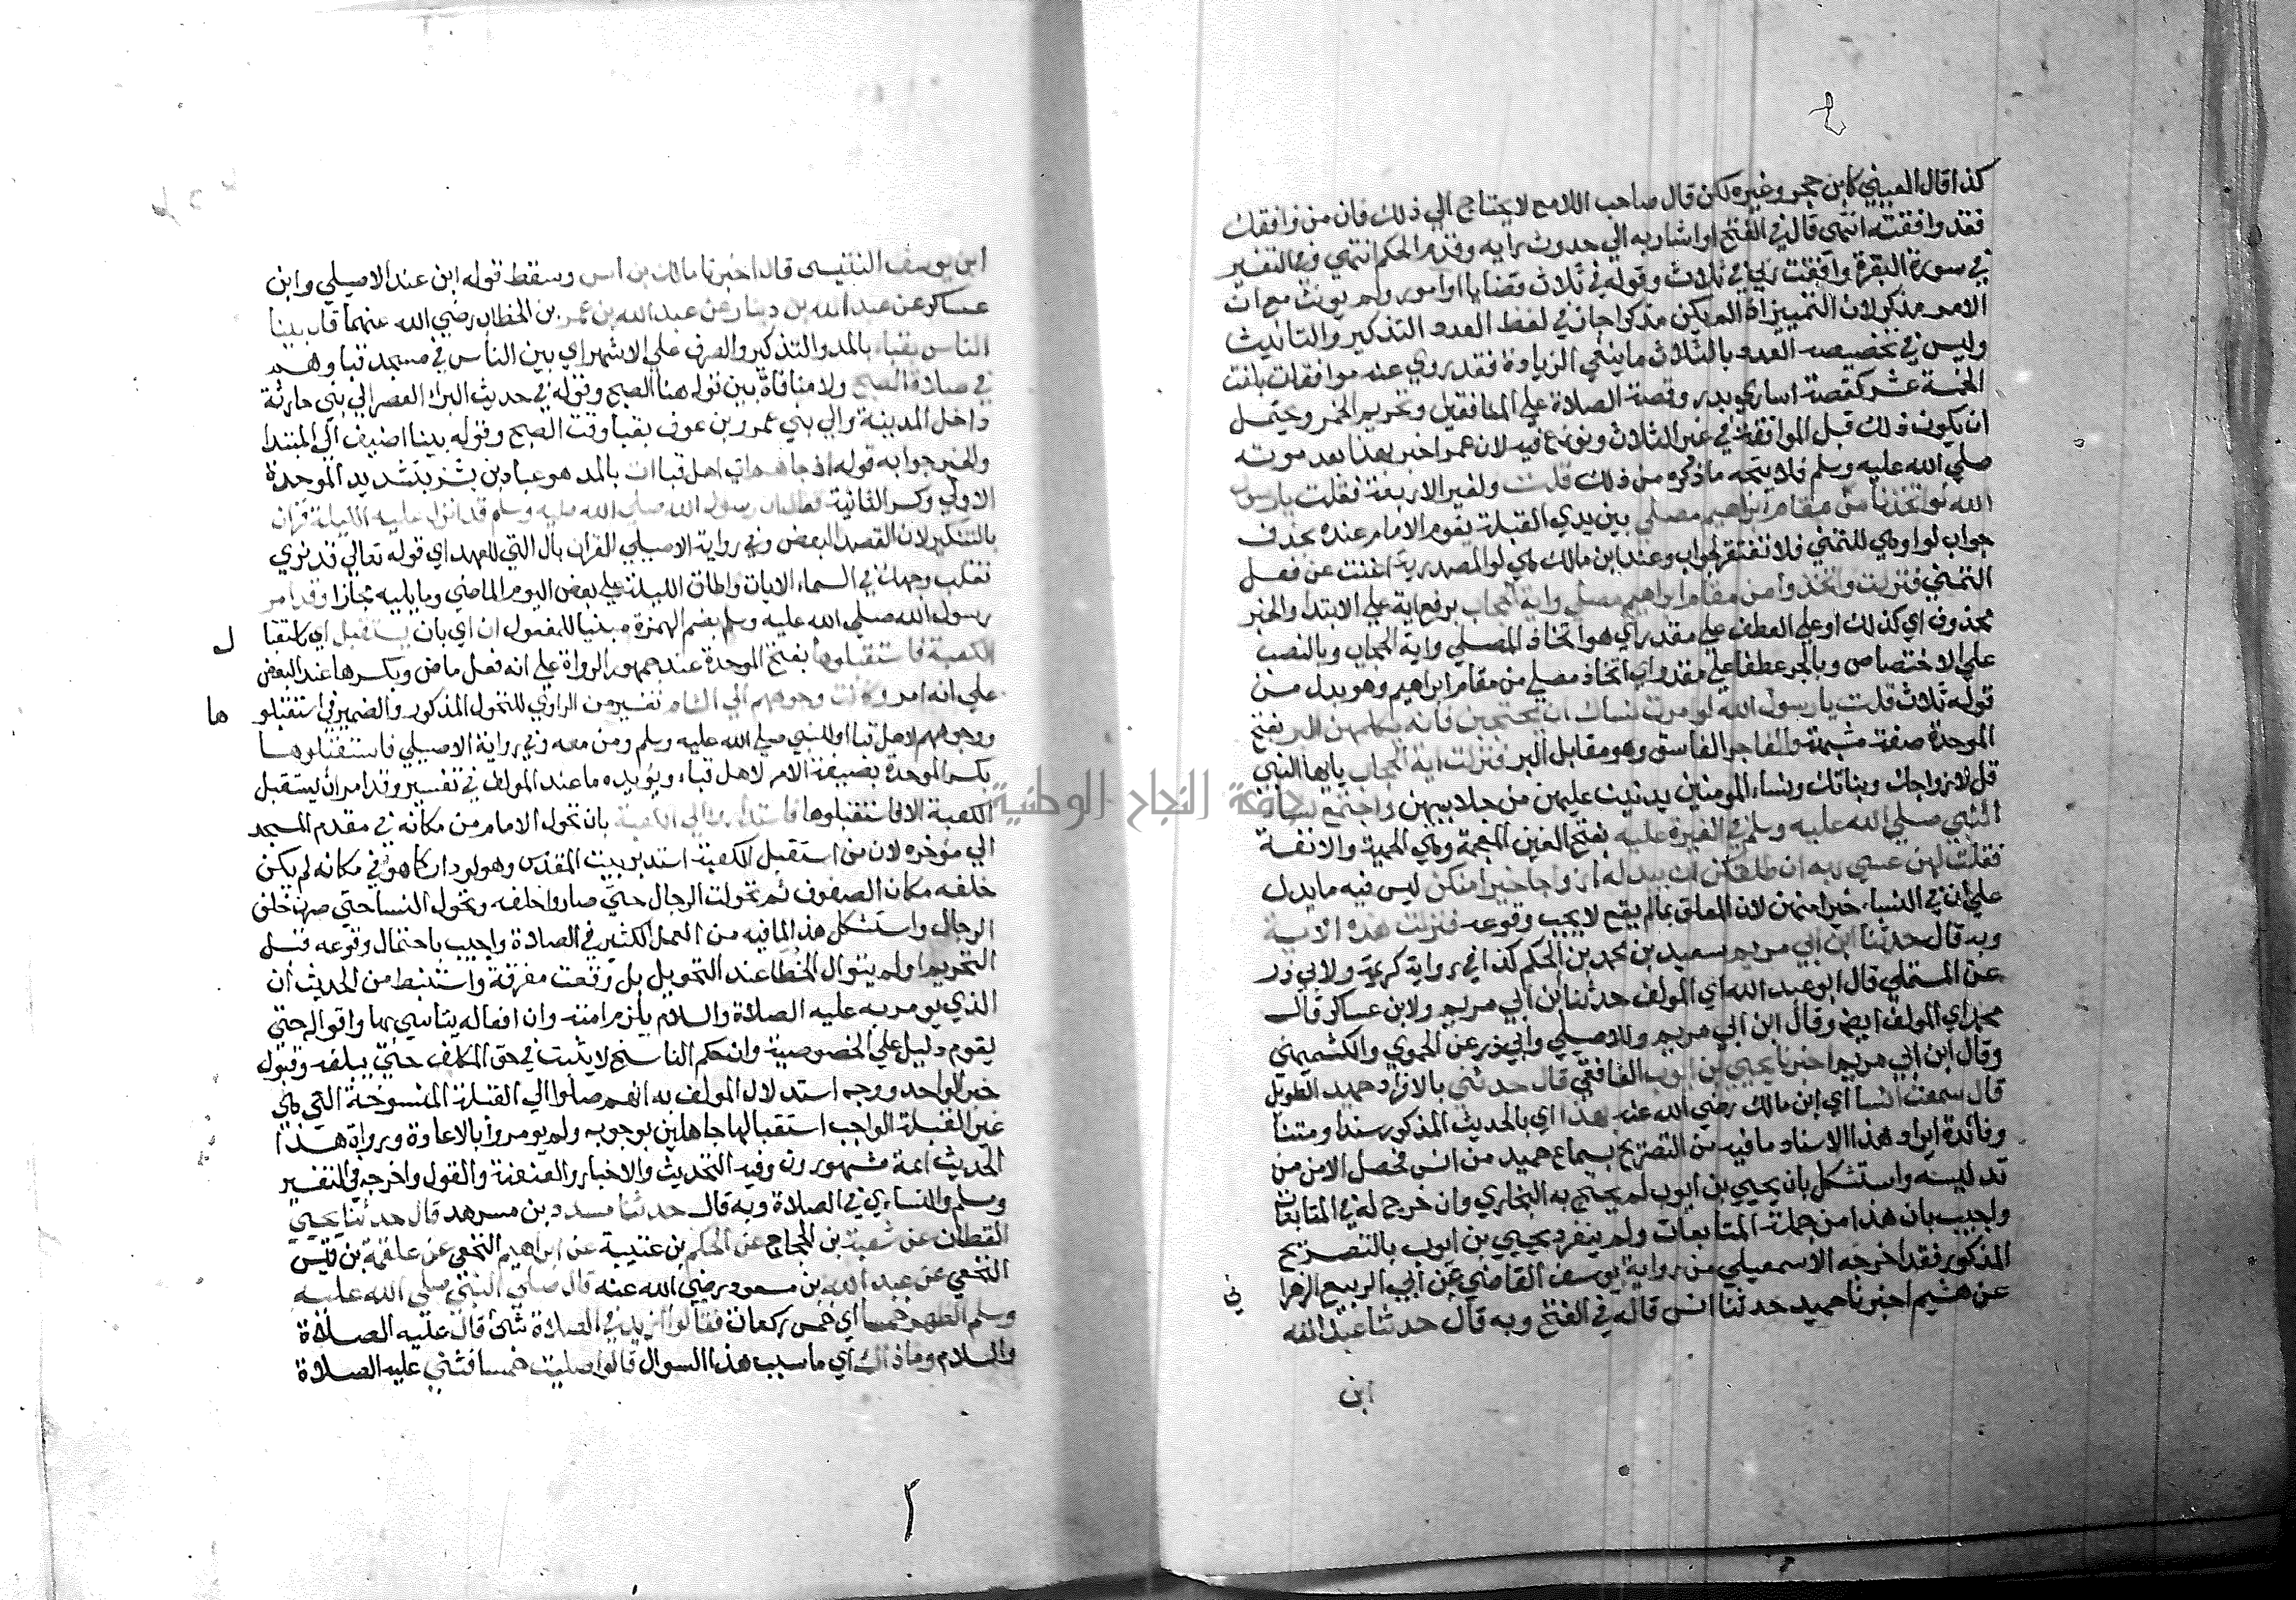 كذا قال العيني كابن حجر وغيره لكن قال صاحب اللامع لا يحتاج الي ذلك فان من وافقك
فقد وافقته انتهي قال في الفتح او اشار به الي حدوث رايه وقدم الحكم انتهي وفي التفسير
في سورة البقرة وافقت ربي في ثلاث وقوله في ثلاث قضايا او امور ولم يونث مع ان
الامر مذكر لان التمييز اذا لم يكن مذكورا جاز في لفظ العدد التذكير والتانيث
وليس في تخصيصه العدد بالثلاث ما ينفي الزيادة فقد روي عنه موافقات بلغت
الخمسة عشر كقصة اساري بدر وقصة الصلاة علي المنافقين وتحريم الخمر ويحتمل
ان يكون ذلك قبل الموافقة في غير الثلاث ونوزع فيه لان عمر اخبر بهذا بعد موته
صلي الله عليه وسلم فلا يتجه ما ذكره من ذلك قلت ولغير الاربعة فقلت يارسول
الله لو اتخذنا من مقام ابراهيم مصلي بين يدي القبلة يقوم الامام عنده بحذف
جواب لو او هي للتمني فلا تفتقر لجواب وعند ابن مالك هي لو المصدرية اغنت عن فعل
التمني فنزلت واتخذوا من مقام ابراهيم مصلي واية الحجاب برفع اية علي الابتدا والخبر
محذوف اي كذلك او علي العطف علي مقدر اي هو اتخاذ المصلي واية الحجاب وبالنصب
علي الاختصاص وبالجر عطفا علي مقدر اي اتخاذ مصلي من مقام ابراهيم وهو بدل من
قوله ثلاث قلت يا رسول الله لو امرت نساك ان يحتجبن فانه يكلمهن البر بفتح
الموحدة صفة مشبهة والفاجر الفاسق وهو مقابل البر فنزلت اية الحجاب يايها النبي
قل لازواجك وبناتك ونساء المومنين يدنين عليهن من جلابيبهن واجتمع نساء
النبي صلي الله عليه وسلم في الغيرة عليه بفتح الغين المعجمة وهي الحمية والانفة
فقلت لهن عسي ربه ان طلقكن ان يبدله ازواجا خيرا منكن ليس فيه ما يدل
علي ان في النساء خيرا منهن لان المعلق بما لم يقع لا يجب وقوعه فنزلت هذه الاية
وبه قال حدثنا ابن ابي مريم سعيد بن محمد بن الحكم كذا في رواية كريمة ولابي ذر
عن المستملي قال ابو عبد الله اي المولف حدثنا ابن ابي مريم ولابن عساكر قال
محمد اي المولف ايضا وقال ابن ابي مريم وللاصيلي وابي ذر عن الحموي والكشميهني
وقال ابن ابي مريم اخبرنا يحيي بن ايوب الغافقي قال حدثني بالافراد حميد الطويل
قال سمعت انسا اي ابن مالك رضي الله عنه بهذا اي بالحديث المذكور سندا ومتنا
وفائدة ايراد هذا الاسناد ما فيه من التصريح بسماع حميد من انس فحصل الامن من
تدليسه واستشكل بان يحيي بن ايوب لم يحتج به البخاري وان خرج له في المتابعات
واجيب بان هذا من جملة المتابعات ولم ينفرد يحيي بن ايوب بالتصريح
المذكور فقد اخرجه الاسمعيلي من رواية يوسف القاضي عن ابي الربيع الزهرا
ني
عن هشيم اخبرنا حميد حدثنا انس قاله في الفتح وبه قال حدثنا عبد الله
ابن
ابن يوسف التنيسي قال اخبرنا مالك بن انس وسقط قوله ابن عند الاصيلي وابن
عساكر عن عبد الله بن دينار عن عبد الله بن عمر بن الخطاب رضي الله عنهما قال بينا
الناس بقباء بالمد والتذكير والصرف علي الاشهر اي بين الناس في مسجد قبا وهم
في صلاة الصبح ولا منافاة بين قوله هنا الصبح وقوله في حديث البراء العصر الي بني حارثة
داخل المدينة والي بني عمرو بن عوف بقبا وقت الصبح وقوله بينا اضيف الي المبتدا
والخبر جوابه قوله اذ جاهم ات اهل قبا ات بالمد هو عباد بن بشر بتشديد الموحدة
الاولي وكسر الثانية فقال ان رسول الله صلي الله عليه وسلم قد انزل عليه الليلة قران
بالتنكير لان القصد البعض وفي رواية الاصيلي القران بال التي للعهد اي قوله تعالي قد نري
تقلب وجهك في السماء الايات واطلق الليلة علي بعض اليوم الماضي وما يليه مجازا وقد امر
رسول الله صلي الله عليه وسلم بضم الهمزة مبنيا للمفعول ان اي بان يستقبل اي باستقبا
ل
الكعبة فاستقبلوها بفتح الموحدة عند جمهور الرواة علي انه فعل ماض وبكسرها عند البعض
علي انه امر وكانت وجوههم الي الشام تفسير من الراوي للتحول المذكور والضمير في استقبلو
ها
ووجوههم لاهل قبا او للنبي صلي الله عليه وسلم ومن معه وفي رواية الاصيلي فاستقبلوها
بكسر الموحدة بصيغة الامر لاهل قباء ويؤيده ما عند المولف في تفسير وقد امر ان يستقبل
الكعبة الا فاستقبلوها فاستداروا الي الكعبة بان تحول الامام من مكانه في مقدم المسجد
الي موخره لان من استقبل الكعبة استدبر بيت المقدس وهو لو دار كما هو في مكانه لم يكن
خلفه مكان الصفوف ثم تحولت الرجال حتي صاروا خلفه وتحول النسا حتي صرن خلف
الرجال واستشكل هذا لما فيه من العمل الكثير في الصلاة واجيب باحتمال وقوعه قبل
التحريم او لم يتوال الخطا عند التحويل بل وقعت مفرقة واستنبط من الحديث ان
الذي يومر به عليه الصلاة والسلام يلزم امته وان افعاله يتاسي بها واقواله حتي
يقوم دليل علي الخصوصية وان حكم الناسخ لا يثبت في حق المكلف حتي يبلغه وقبول
خبر الواحد ووجه استدلال المولف به انهم صلوا الي القبلة المنسوخة التي هي
غير القبلة الواجب استقبالها جاهلين بوجوبه ولم يومروا بالاعادة ورواة هذا
الحديث ائمة مشهورون وفيه التحديث والاخبار والعنعنة والقول واخرجه في التفسير
ومسلم والنساءي في الصلاة وبه قال حدثنا مسدد بن مسرهد قال حدثنا يحيي
القطان عن شعبة بن الحجاج عن الحكم بن عتيبة عن ابراهيم النخعي عن علقمة بن قيس
النخعي عن عبد الله بن مسعود رضي الله عنه قال صلي النبي صلي الله عليه
وسلم الظهر خمسا اي خمس ركعات فقالوا ازيد في الصلاة شئ قال عليه الصلاة
والسلام وما ذاك اي ما سبب هذا السوال قالوا صليت خمسا فثني عليه الصلاة
جامعة النجاح الوطنية